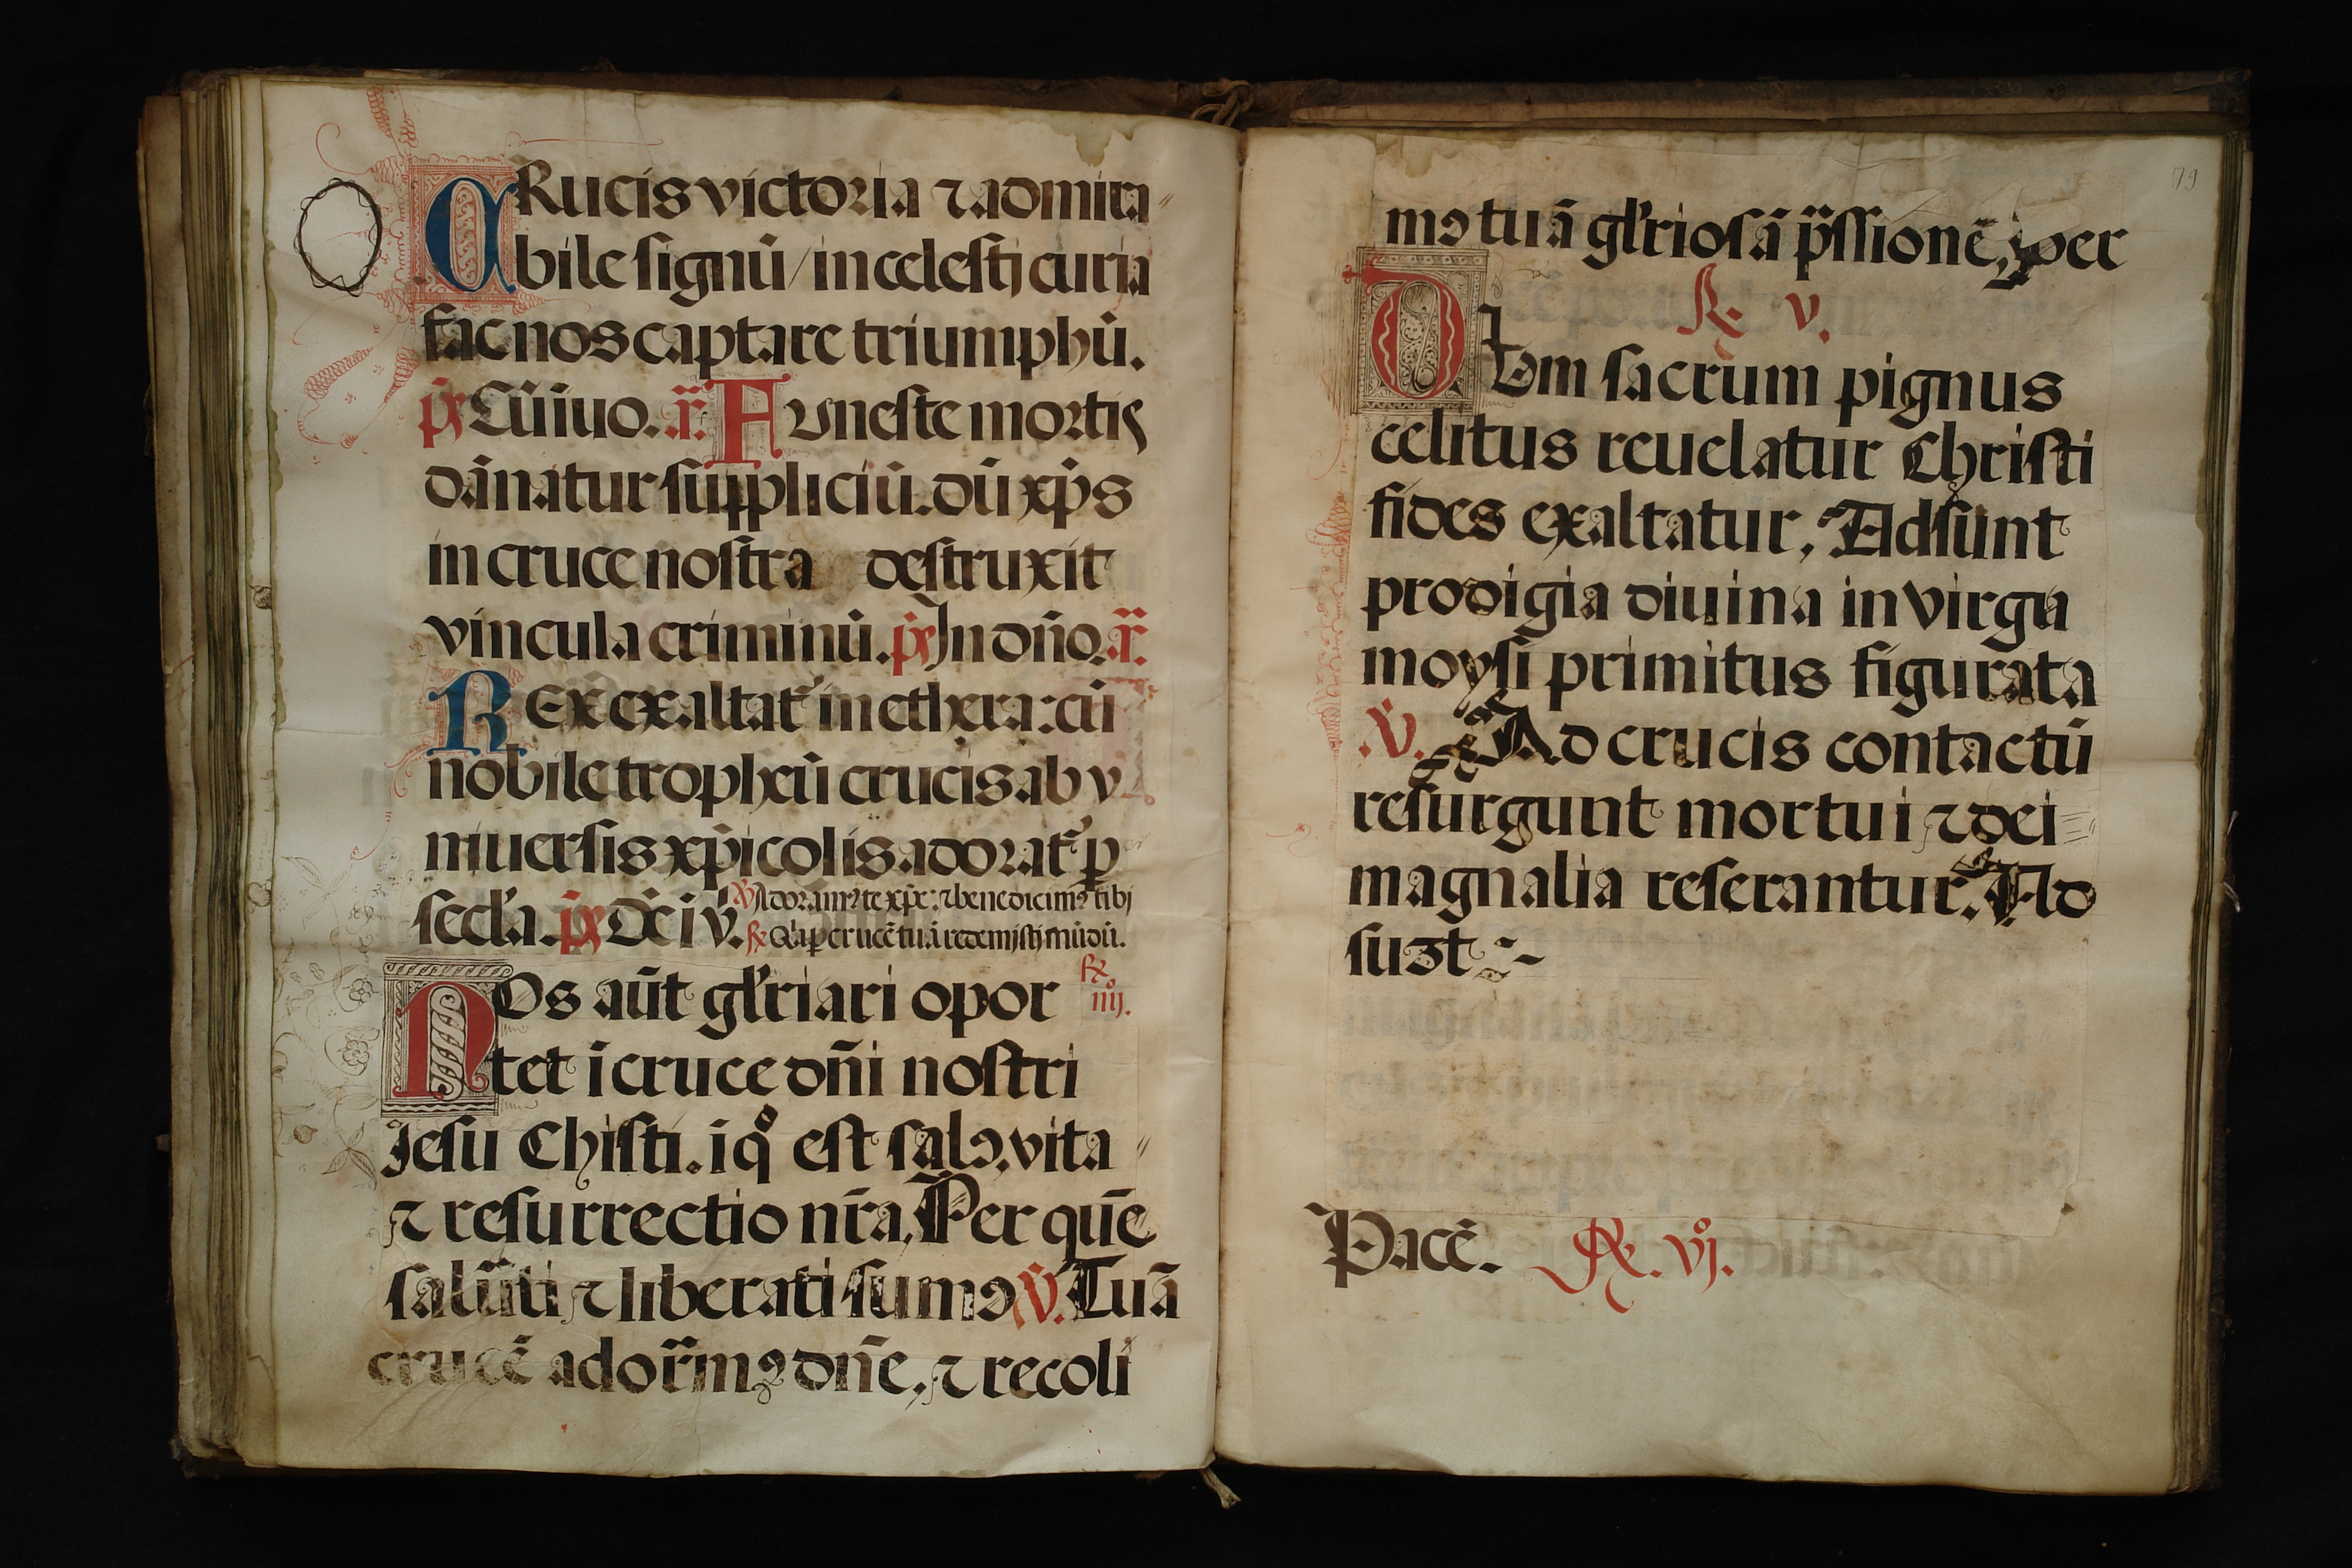 O CRucis victoria ⁊ admira
bile signū / in celestj curia
fac nos captare triumphū.
ps̄ Cū īuo. r̄. Funeste mortis
dānatur suppliciū. dū xp̄s
in cruce nostra destruxit
vincula criminū. ps̄ In dn̄o. r̄.
REx exaltat᷑ in ethera: cū
nobile tropheū crucis ab v
niuersis xp̄icolis adorat᷑ p
secl'a. ps̄ Dc̄i v̄. v̄ Adoramꝰ te xp̄e: ⁊ benedicimꝰ tibj
℞ Qͥa ꝑ crucē tuā redemistj mūdū.
NOs aūt gl'riari opor ℞ iiijº.
tet ī cruce dn̄i nostri
Jesu Chisti. ī qͦ est salꝰ, vita
⁊ resurrectio nr̄a, Per quē
saluāti ⁊ liberati sumꝰ v̄. Tuā
crucē ador̄mꝰ dn̄e, ⁊ recoli
79
mꝰ tuā gl'riosā p̄ssionē, per
℞. v.
DUm sacrum pignus
celitus reuelatur Christi
fides exaltatur, Adsunt
prodigia diuina in virga
moysi primitus figurata
.v̄. Ad crucis contactū
resurgunt mortui ⁊ dei
magnalia reserantur. Ad
suꝫt
Pacē. ℞. vjº.